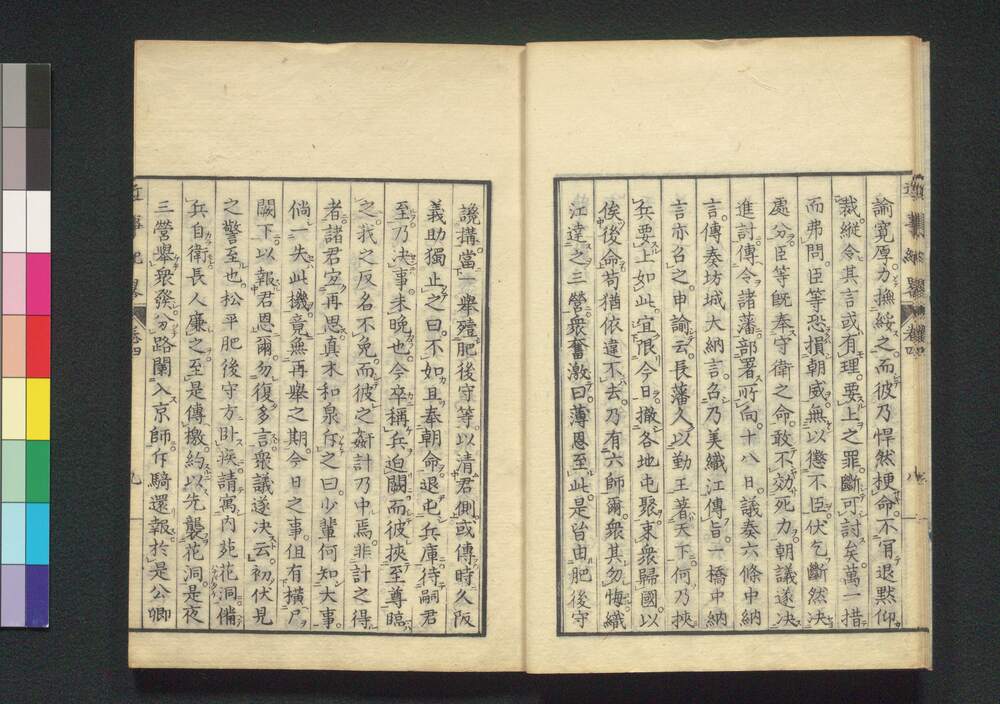 諭寛厚力撫綏之而彼乃悍然梗命不肎退默仰
裁縱令其言或有理要上之罪斷可討矣萬一措
而弗問臣等恐損朝威無以懲不臣伏乞斷然決
處分臣等旣奉守衛之命敢不效死力朝議遂決
進討傳令諸藩部署所向十八日議奏六條中納
言傳奏坊城大納言召乃美織江傳旨一橋中納
言亦召之申諭云長藩人以勤王著天下何乃挾
兵要上如此宜限今日撤各地屯聚束衆歸國以
俟後命苟猶依違不去乃有六師爾衆其勿悔織
江達之三營衆奮激曰薄恩至此是皆由肥後守
讒搆當一舉殪肥後守等以清君側或傳時久阪
義助獨止之曰不如且奉朝命退屯兵庫待嗣君
至乃決事未晚也今卒稱兵迫闕而彼挾至尊臨
之我之反名不免而彼之姦計乃中焉非計之得
者諸君宜再思真木和泉斥之曰少輩何知大事
倘一失此機竟無再舉之期今日之事但有橫尸
闕下以報君恩爾勿復多言衆議遂決云初伏見
之警至也松平肥後守方臥疾請寓內苑花洞備
兵自衛長人廉之至是傳檄約以先襲花洞是夜
三營舉衆發分路闌入京師斥騎還報於是公卿
卷四
九